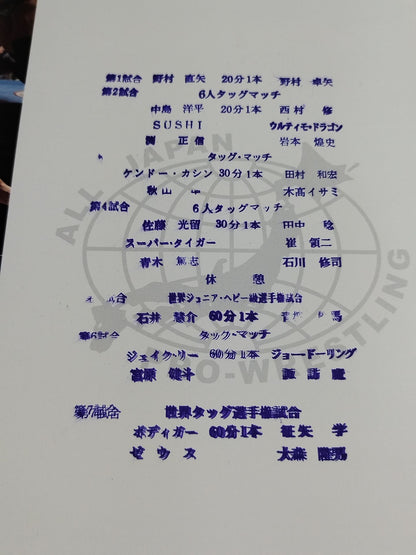 第1試合 野村 直矢 20分1本 野村 卓矢
第2試合 6人タッグマッチ
中島 洋平 20分1本 西村 修
SUSHI ウルティモ・ドラゴン
渕 正信 岩本 煌史
タッグ・マッチ
ケンドー・カシン 30分1本 田村 和宏
秋山 木高イサミ
第4試合 6人タッグマッチ
佐藤 光留 30分1本 田中 稔
スーパー・タイガー 崔 領二
青木 篤志 石川 修司
休 憩
試合 世界ジュニア・ヘビー級選手権試合
石井 慧介 60分1本
第6試合 タッグ・マッチ
ジェイク・リー 60分1本 ジョー・ドーリング
宮原 健斗 諏訪魔
第7試合 世界タッグ選手権試合
ボディガー 60分1本 征矢 学
ゼウス 大森 隆男
ALL JAPAN PRO-WRESTLING